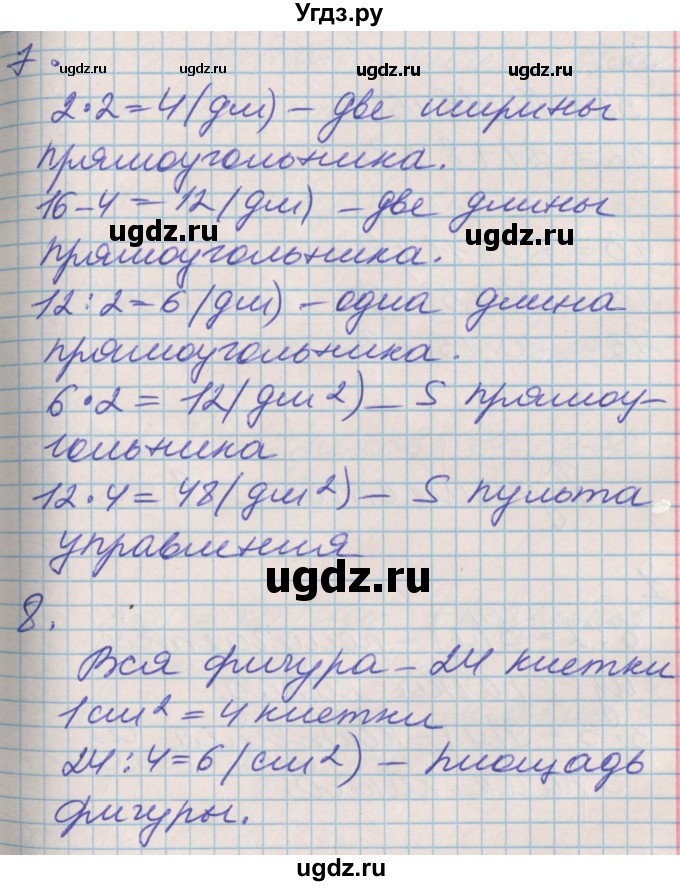 Угдз.ру
7.
ugdz.ru ugdz.ru ugdz.ru
2·2=4(дм) – две ширины
прямоугольника.
16-4=12(дм) – две длины
ugdz.ru ugdz.ru
прямоугольника.
12:2=6(дм) – одна длина
прямоугольника.
6·2=12(дм2) – S прямоу-
гольника
12·4=48(дм2) – S пульта
управления
ugdz.ru
8.
Вся фигура – 24 клетки
1см2=4 клетки
24:4=6(см2) – площадь
фигуры.
ugdz.ru